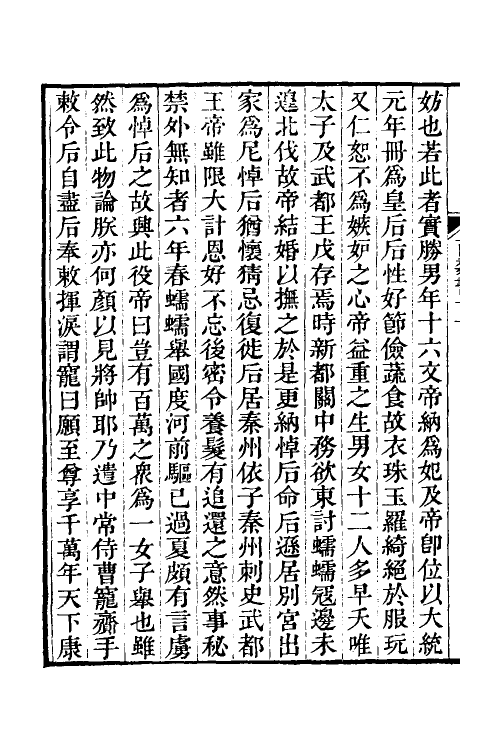 妨也若此者實勝男年十六文帝納為妃及帝卽位以大統
元年冊為皇后后性好節儉蔬食故衣珠玉羅綺絕於服玩
又仁恕不為嫉妒之心帝益重之生男女十二人多早夭唯
太子及武都王戊存焉時新都關中務欲東討蠕蠕寇邊未
遑北伐故帝結婚以撫之於是更納悼后命后遜居別宮出
家為尼悼后猶懷猜忌復徙后居秦州依子秦州刺史武都
王帝雖限大計恩好不忘後密令養髮有追還之意然事秘
禁外無知者六年春蠕蠕舉國度河前驅已過夏頗有言虜
為悼后之故興此役帝曰豈有百萬之衆為一女子舉也雖
然致此物論朕亦何顏以見將帥耶乃遣中常侍曹寵齎手
敕令后自盡后奉敕揮淚謂寵曰願至尊享千萬年天下康